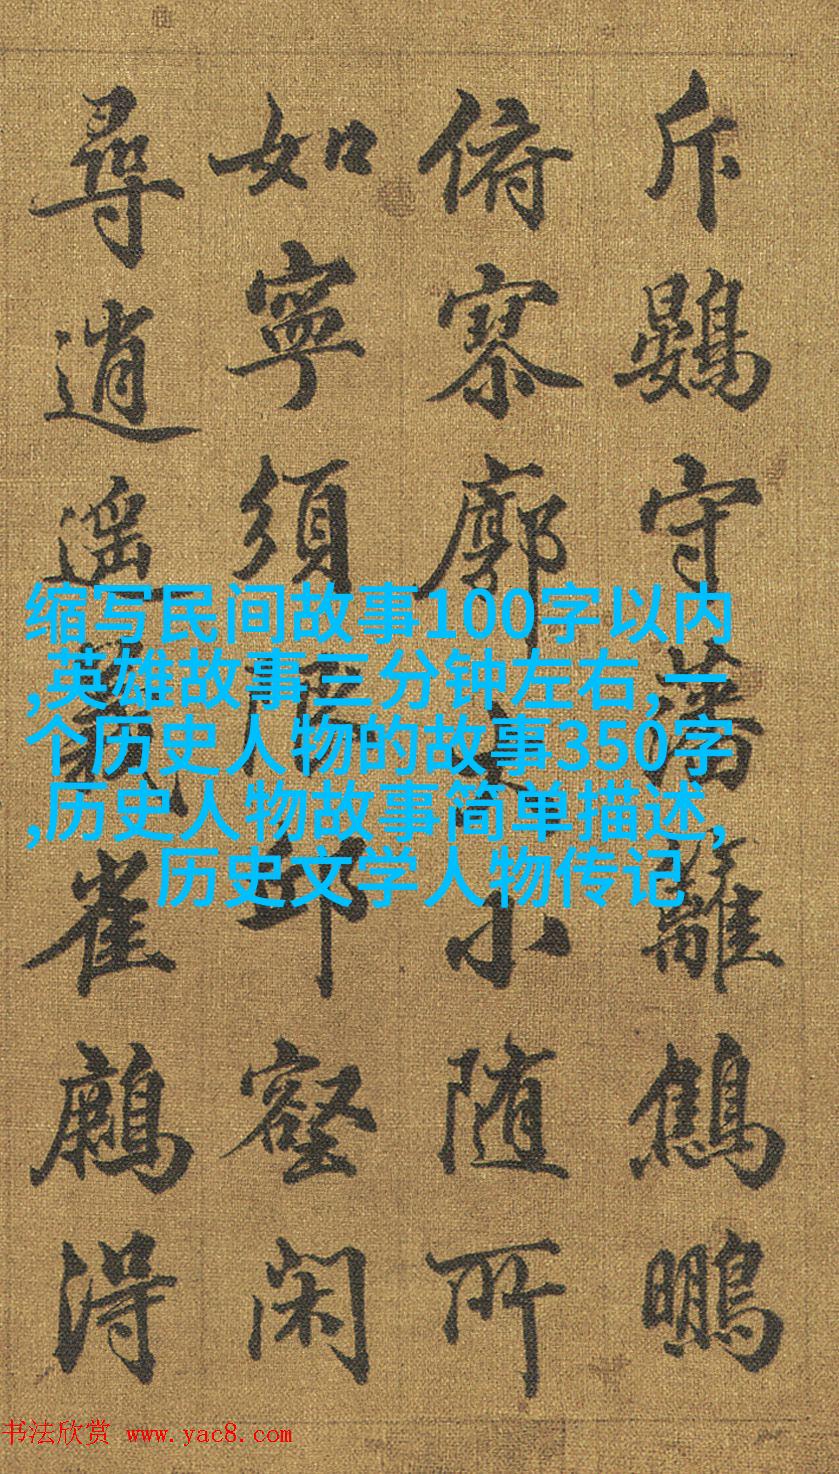 斥鷃守藩籬鷦鵬
俯寥廓小随所
如寧須邱壑闲
尋逍遥雀得
缩写民间故事100字以内
,英雄故事三分钟左右,一
个历史人物的故事350字
,历史人物故事简单描述,
历史文学人物传记
书法欣赏 www.yac8.com